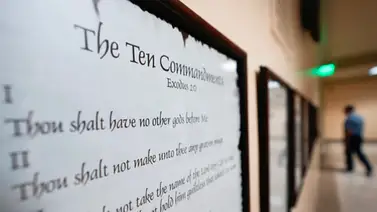 The Ten Commandments
Exodus 20
I
Thou shalt have no other gods before Me
II
Thou shalt not make unto thee any graven image
Thou shalt not take the name of the Lord
hold him guiltless that